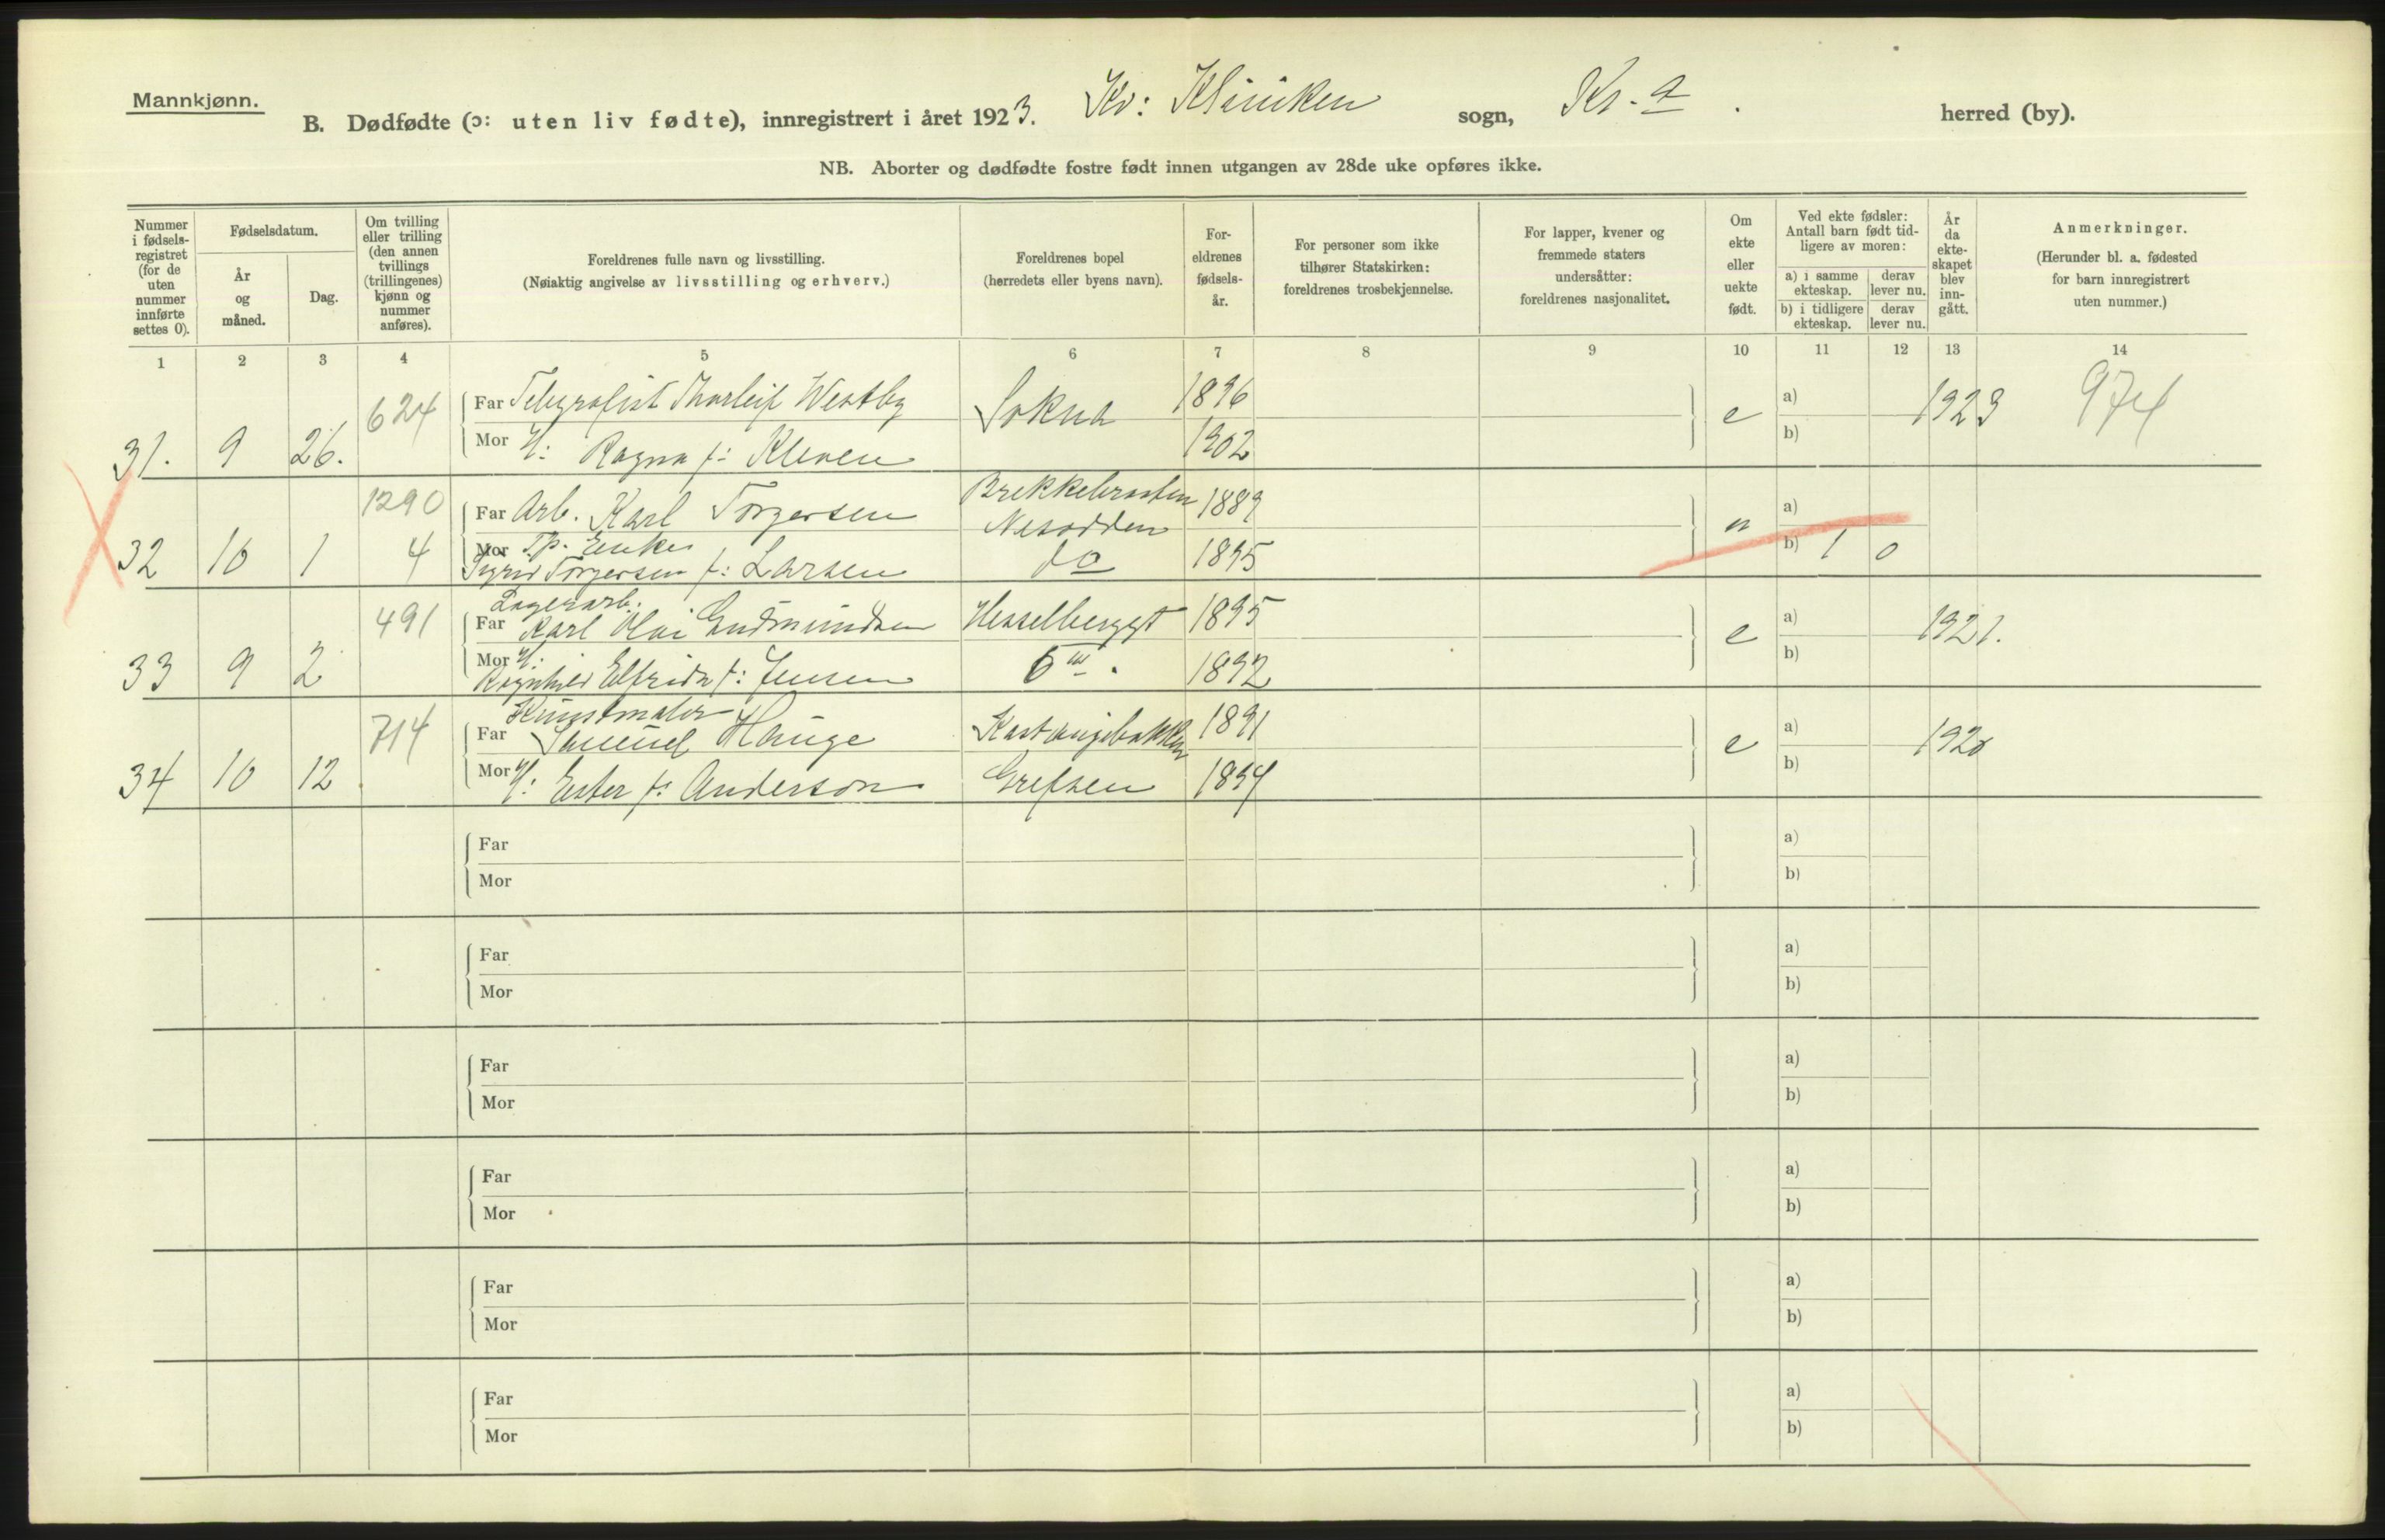 Mannkjønn.
B. Dødfødte (ɔ: uten liv fødte), innregistrert i året 1923. Kv: Kliniken sogn, Kr.a. herred (by).
NB. Aborter og dødfødte fostre født innen utgangen av 28de uke opføres ikke.
Nummer i fødsels-registret (for de uten nummer innførte settes 0).
Fødselsdatum.
År og måned.
Dag.
Om tvilling eller trilling (den annen tvillings (trillingenes) kjønn og nummer anføres).
Foreldrenes fulle navn og livsstilling.
(Nøiaktig angivelse av livsstilling og erhverv.)
Foreldrenes bopel
(herredets eller byens navn).
For-eldrenes fødsels-år.
For personer som ikke tilhører Statskirken: foreldrenes trosbekjennelse.
For lapper, kvener og fremmede staters undersåtter: foreldrenes nasjonalitet.
Om ekte eller uekte født.
Ved ekte fødsler: Antall barn født tid-ligere av moren:
a) i samme ekteskap. derav lever nu.
b) i tidligere ekteskap. derav lever nu.
År da ekte-skapet blev inn-gått.
Anmerkninger.
(Herunder bl. a. fødested for barn innregistrert uten nummer.)
1 2 3 4 5 6 7 8 9 10 11 12 13 14
31. 9 26. 624 Far Telegrafist Thorleif Westby Sokna 1896 e a) 1923 974
Mor H: Ragna f: Kleven 1902 b)
32 10 1 1290 Far Arb. Karl Torgersen Nesodden 1889 a)
4 Mor Enke
Torgersen f: Larsen do 1895 b) 1 0
Lagerarb.
33 9 2 491 Far Karl Olai Gudmundsen Hesselberggt 1895 e a) 1921.
Mor H:
Ragnhild Elfrida f: Jensen 6 III. 1892 b)
Kunstmaler
34 10 12 714 Far Samuel Hauge 1891 e a)
Mor H: Ester f: Anderson Grefsen b)
Far a)
Mor b)
Far a)
Mor b)
Far a)
Mor b)
Far a)
Mor b)
Far a)
Mor b)
Far a)
Mor b)